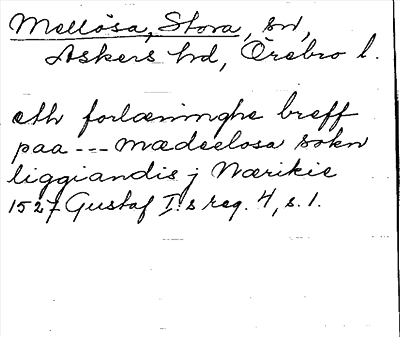 Mellösa, Stora, sn,
Askers hd, Örebro l.
eth forlæninghe breff
paa --- Mædeelosa sokn
liggiandis j Nærikie
1527 Gustaf I:s reg. 4, s. 1.